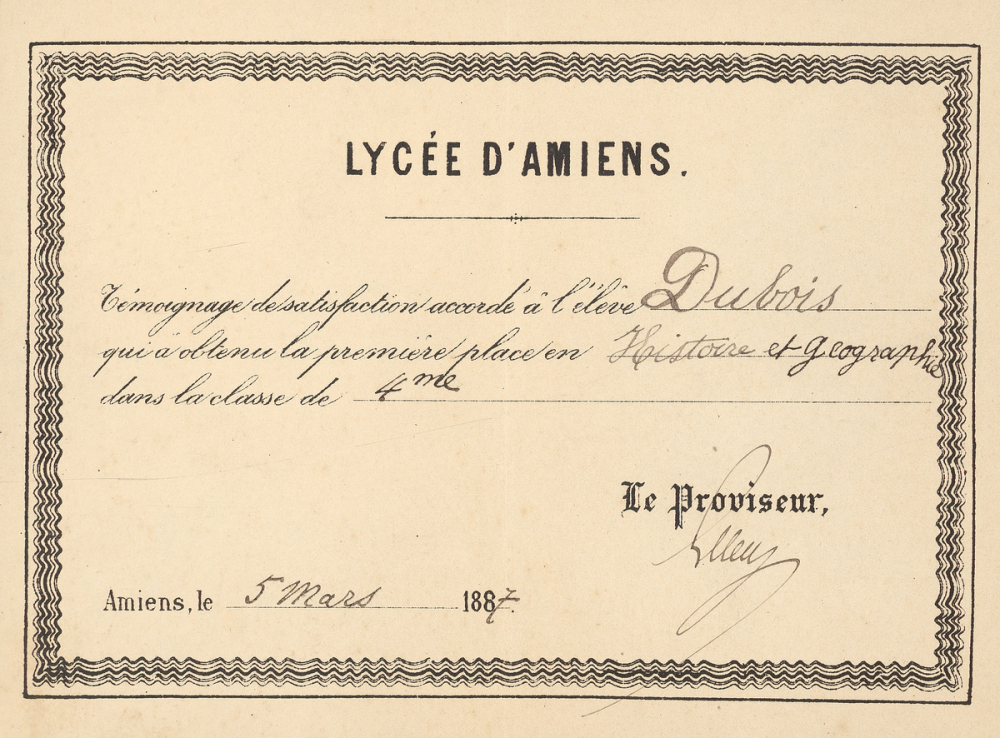 LYCÉE D'AMIENS.
Témoignage de satisfaction accordé à l'élève Dubois
qui a obtenu la première place en Histoire et Géographie
dans la classe de 4me
Le Proviseur,
Amiens, le 5 Mars 1887.